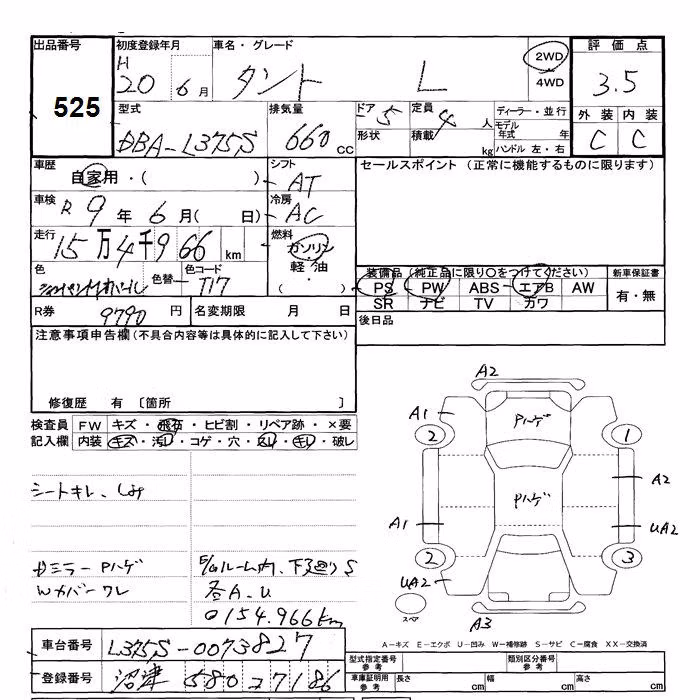 出品番号 525
初度登録年月 H 20 6月
車名・グレード タント L
2WD 4WD
評価点 3.5
型式 DBA-L375S
排気量 660 CC
ドア 5
形状
定員 4 人
積載 kg
ディーラー・並行
モデル年式 年
ハンドル 左・右
外装 内装
C C
車歴 自家用・( )
シフト AT
セールスポイント (正常に機能するものに限ります)
車検 R 9年 6月( 日)
冷房 AC
走行 15万4千9 66 km
燃料 ガソリン
軽・油
( )
色
色替
色コード T17
装備品 (純正品に限り〇をつけてください)
新車保証書
PS PW ABS エアB AW
SR ナビ TV カワ
有・無
R券 9790 円
名変期限 月 日
後日品
注意事項申告欄 (不具合内容等は具体的に記入して下さい)
修復歴 有 〔箇所 〕
検査員 FW キズ・飛石・ヒビ割・リペア跡・×要
記入欄 内装 キズ・汚レ・コゲ・穴・スレ・キレ・破レ
シートキレ、しみ
ミラーPハゲ
Wカバーワレ
ルーム内、下廻りS
各A.U
0154.966km
A2
A1
2 1
Pハゲ
A2
Pハゲ
A1
UA2
2 3
UA2
スペア
A3
A-キズ E-エクボ U-凹み W-補修跡 S-サビ C-腐食 XX-交換済
車台番号 L375S-0073827
登録番号 沼津 580 7186
型式指定番号 参考
類別区分番号 参考
車庫証明用 参考
長さ cm
幅 cm
高さ cm